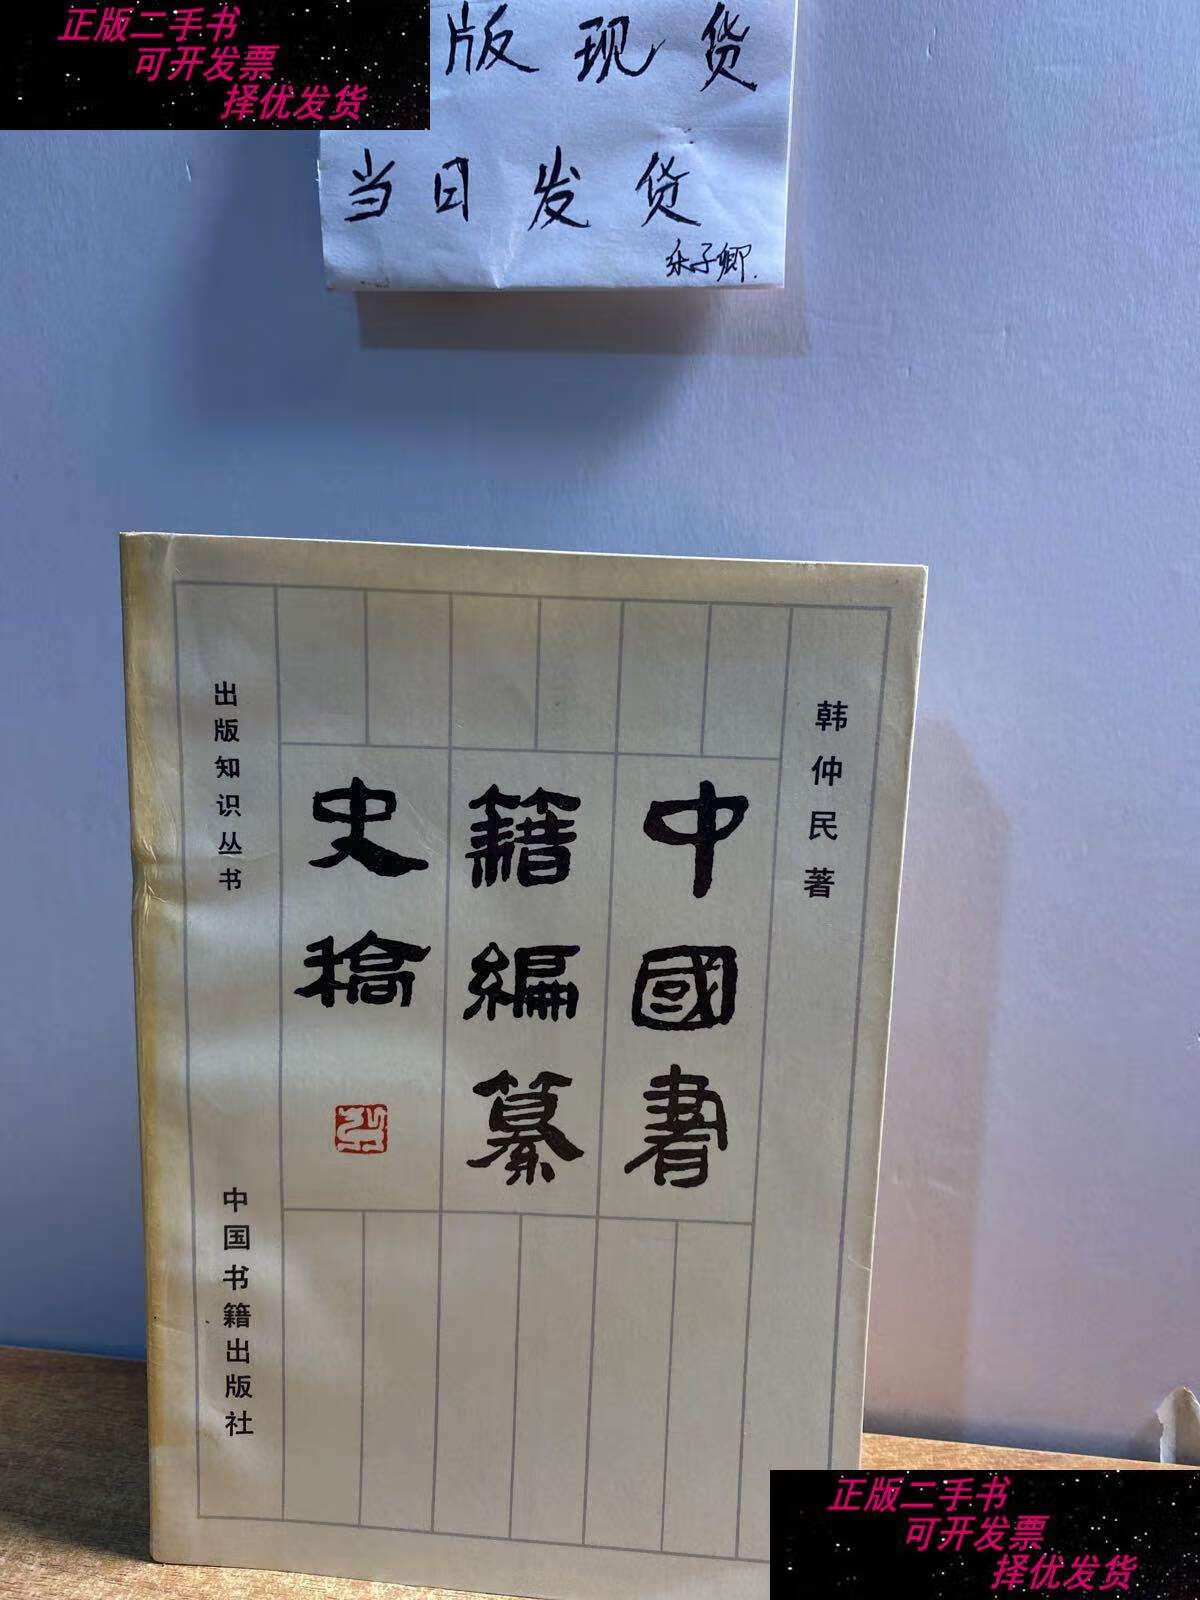 正版二手书
可开发票
择优发货
版现货
当日发货
韩仲民著
中國書
籍編纂
史稿
出版知识丛书
中国书籍出版社
正版二手书
可开发票
择优发货